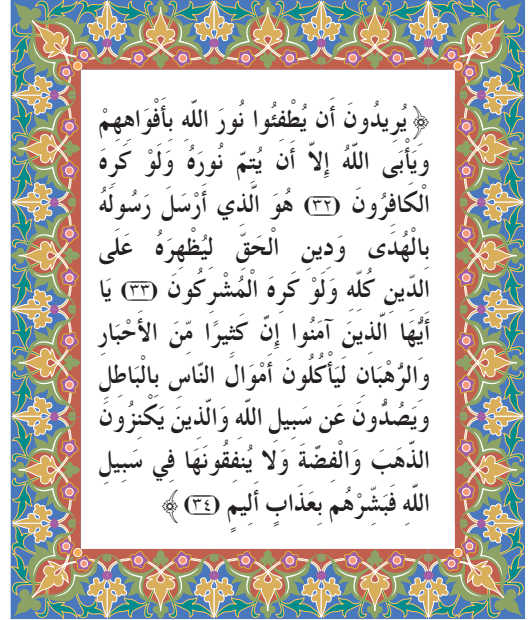 ﴿ يُرِيدُونَ أَن يُطْفِئُوا نُورَ اللّهِ بِأَفْوَاهِهِمْ
وَيَأْبَى اللّهُ إِلاّ أَن يُتِمّ نُورَهُ وَلَوْ كَرِهَ
الْكَافِرُونَ (٣٢) هُوَ الّذِي أَرْسَلَ رَسُولَهُ
بِالْهُدَى وَدِينِ الْحَقّ لِيُظْهِرَهُ عَلَى
الدّينِ كُلّهِ وَلَوْ كَرِهَ الْمُشْرِكُونَ (٣٣) يَا
أَيُّهَا الّذِينَ آمَنُوا إِنّ كَثِيرًا مّنَ الأَحْبَارِ
والرُّهْبَانِ لَيَأْكُلُونَ أَمْوَالَ النّاسِ بِالْبَاطِلِ
وَيَصُدُّونَ عَن سَبِيلِ اللّهِ وَالّذِينَ يَكْنِزُونَ
الذّهَبَ وَالْفِضّةَ وَلا يُنفِقُونَهَا فِي سَبِيلِ
اللّهِ فَبَشّرْهُم بِعَذَابٍ أَلِيمٍ (٣٤) ﴾